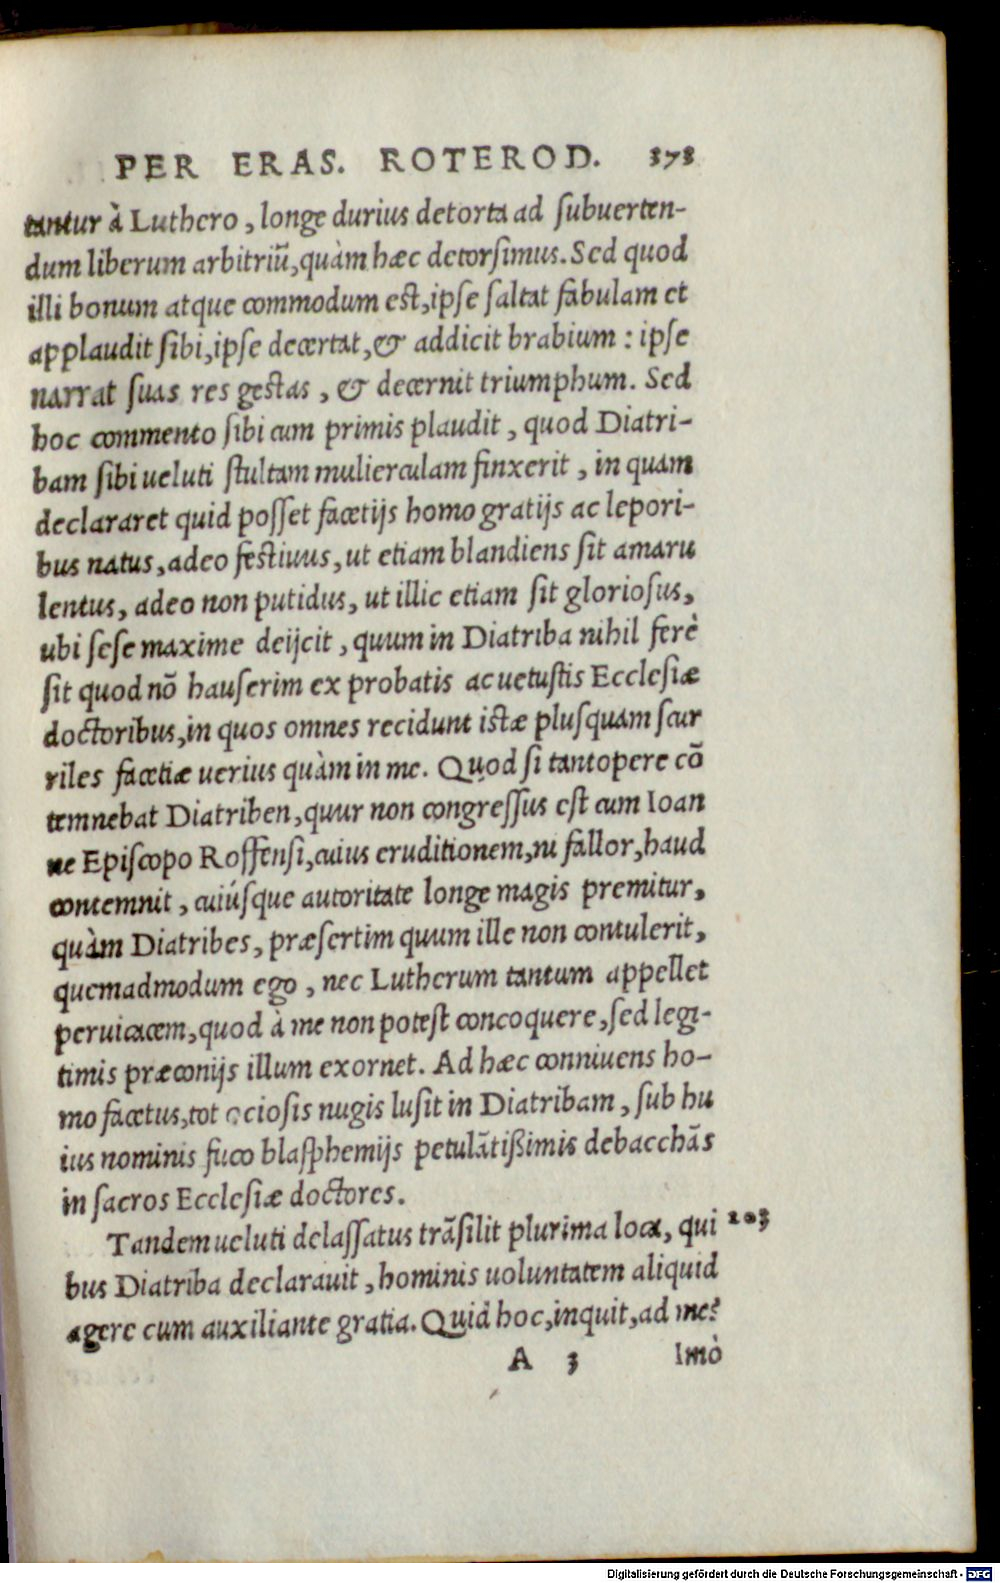 PER ERAS. ROTEROD. 373
tantur à Luthero, longe durius detorta ad subuerten-
dum liberum arbitriũ, quàm hæc detorsimus. Sed quod
illi bonum atque commodum est, ipse saltat fabulam et
applaudit sibi, ipse decertat, & addicit brabium : ipse
narrat suas res gestas, & decernit triumphum. Sed
hoc commento sibi cum primis plaudit, quod Diatri-
bam sibi ueluti stultam mulierculam finxerit, in quam
declararet quid posset facetijs homo gratijs ac lepori-
bus natus, adeo festiuus, ut etiam blandiens sit amaru
lentus, adeo non putidus, ut illic etiam sit gloriosus,
ubi sese maxime deijcit, quum in Diatriba nihil ferè
sit quod nõ hauserim ex probatis ac uetustis Ecclesiæ
doctoribus, in quos omnes recidunt istæ plusquam scur
riles facetiæ uerius quàm in me. Quod si tantopere cõ
temnebat Diatriben, quur non congressus est cum Ioan
ne Episcopo Roffensi, cuius eruditionem, ni fallor, haud
contemnit, cuiúsque autoritate longe magis premitur,
quàm Diatribes, præsertim quum ille non contulerit,
quemadmodum ego, nec Lutherum tantum appellet
peruicacem, quod à me non potest concoquere, sed legi-
timis præconijs illum exornet. Ad hæc conniuens ho-
mo facetus, tot ociosis nugis lusit in Diatribam, sub hu
ius nominis fuco blasphemijs petulãtißimis debacchãs
in sacros Ecclesiæ doctores.
Tandem ueluti delassatus trãsilit plurima loca, qui 203
bus Diatriba declarauit, hominis uoluntatem aliquid
agere cum auxiliante gratia. Quid hoc, inquit, ad me?
A 3 Imò
Digitalisierung gefördert durch die Deutsche Forschungsgemeinschaft - DFG